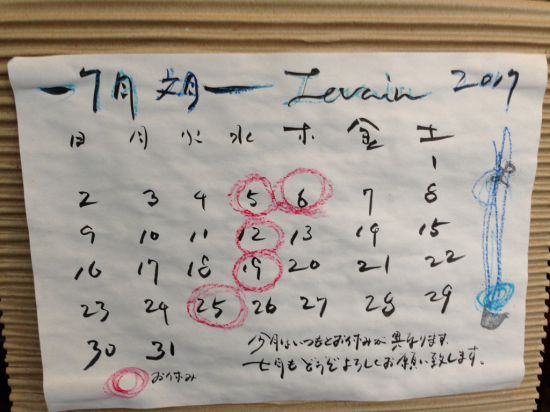 7月 文月 Levain 2017
日 月 火 水 木 金 土
1
2 3 4 5 6 7 8
9 10 11 12 13 14 15
16 17 18 19 20 21 22
23 24 25 26 27 28 29
30 31
今月はいつもとお休みが異なります.
七月もどうぞよろしくお願い致します。
お休み